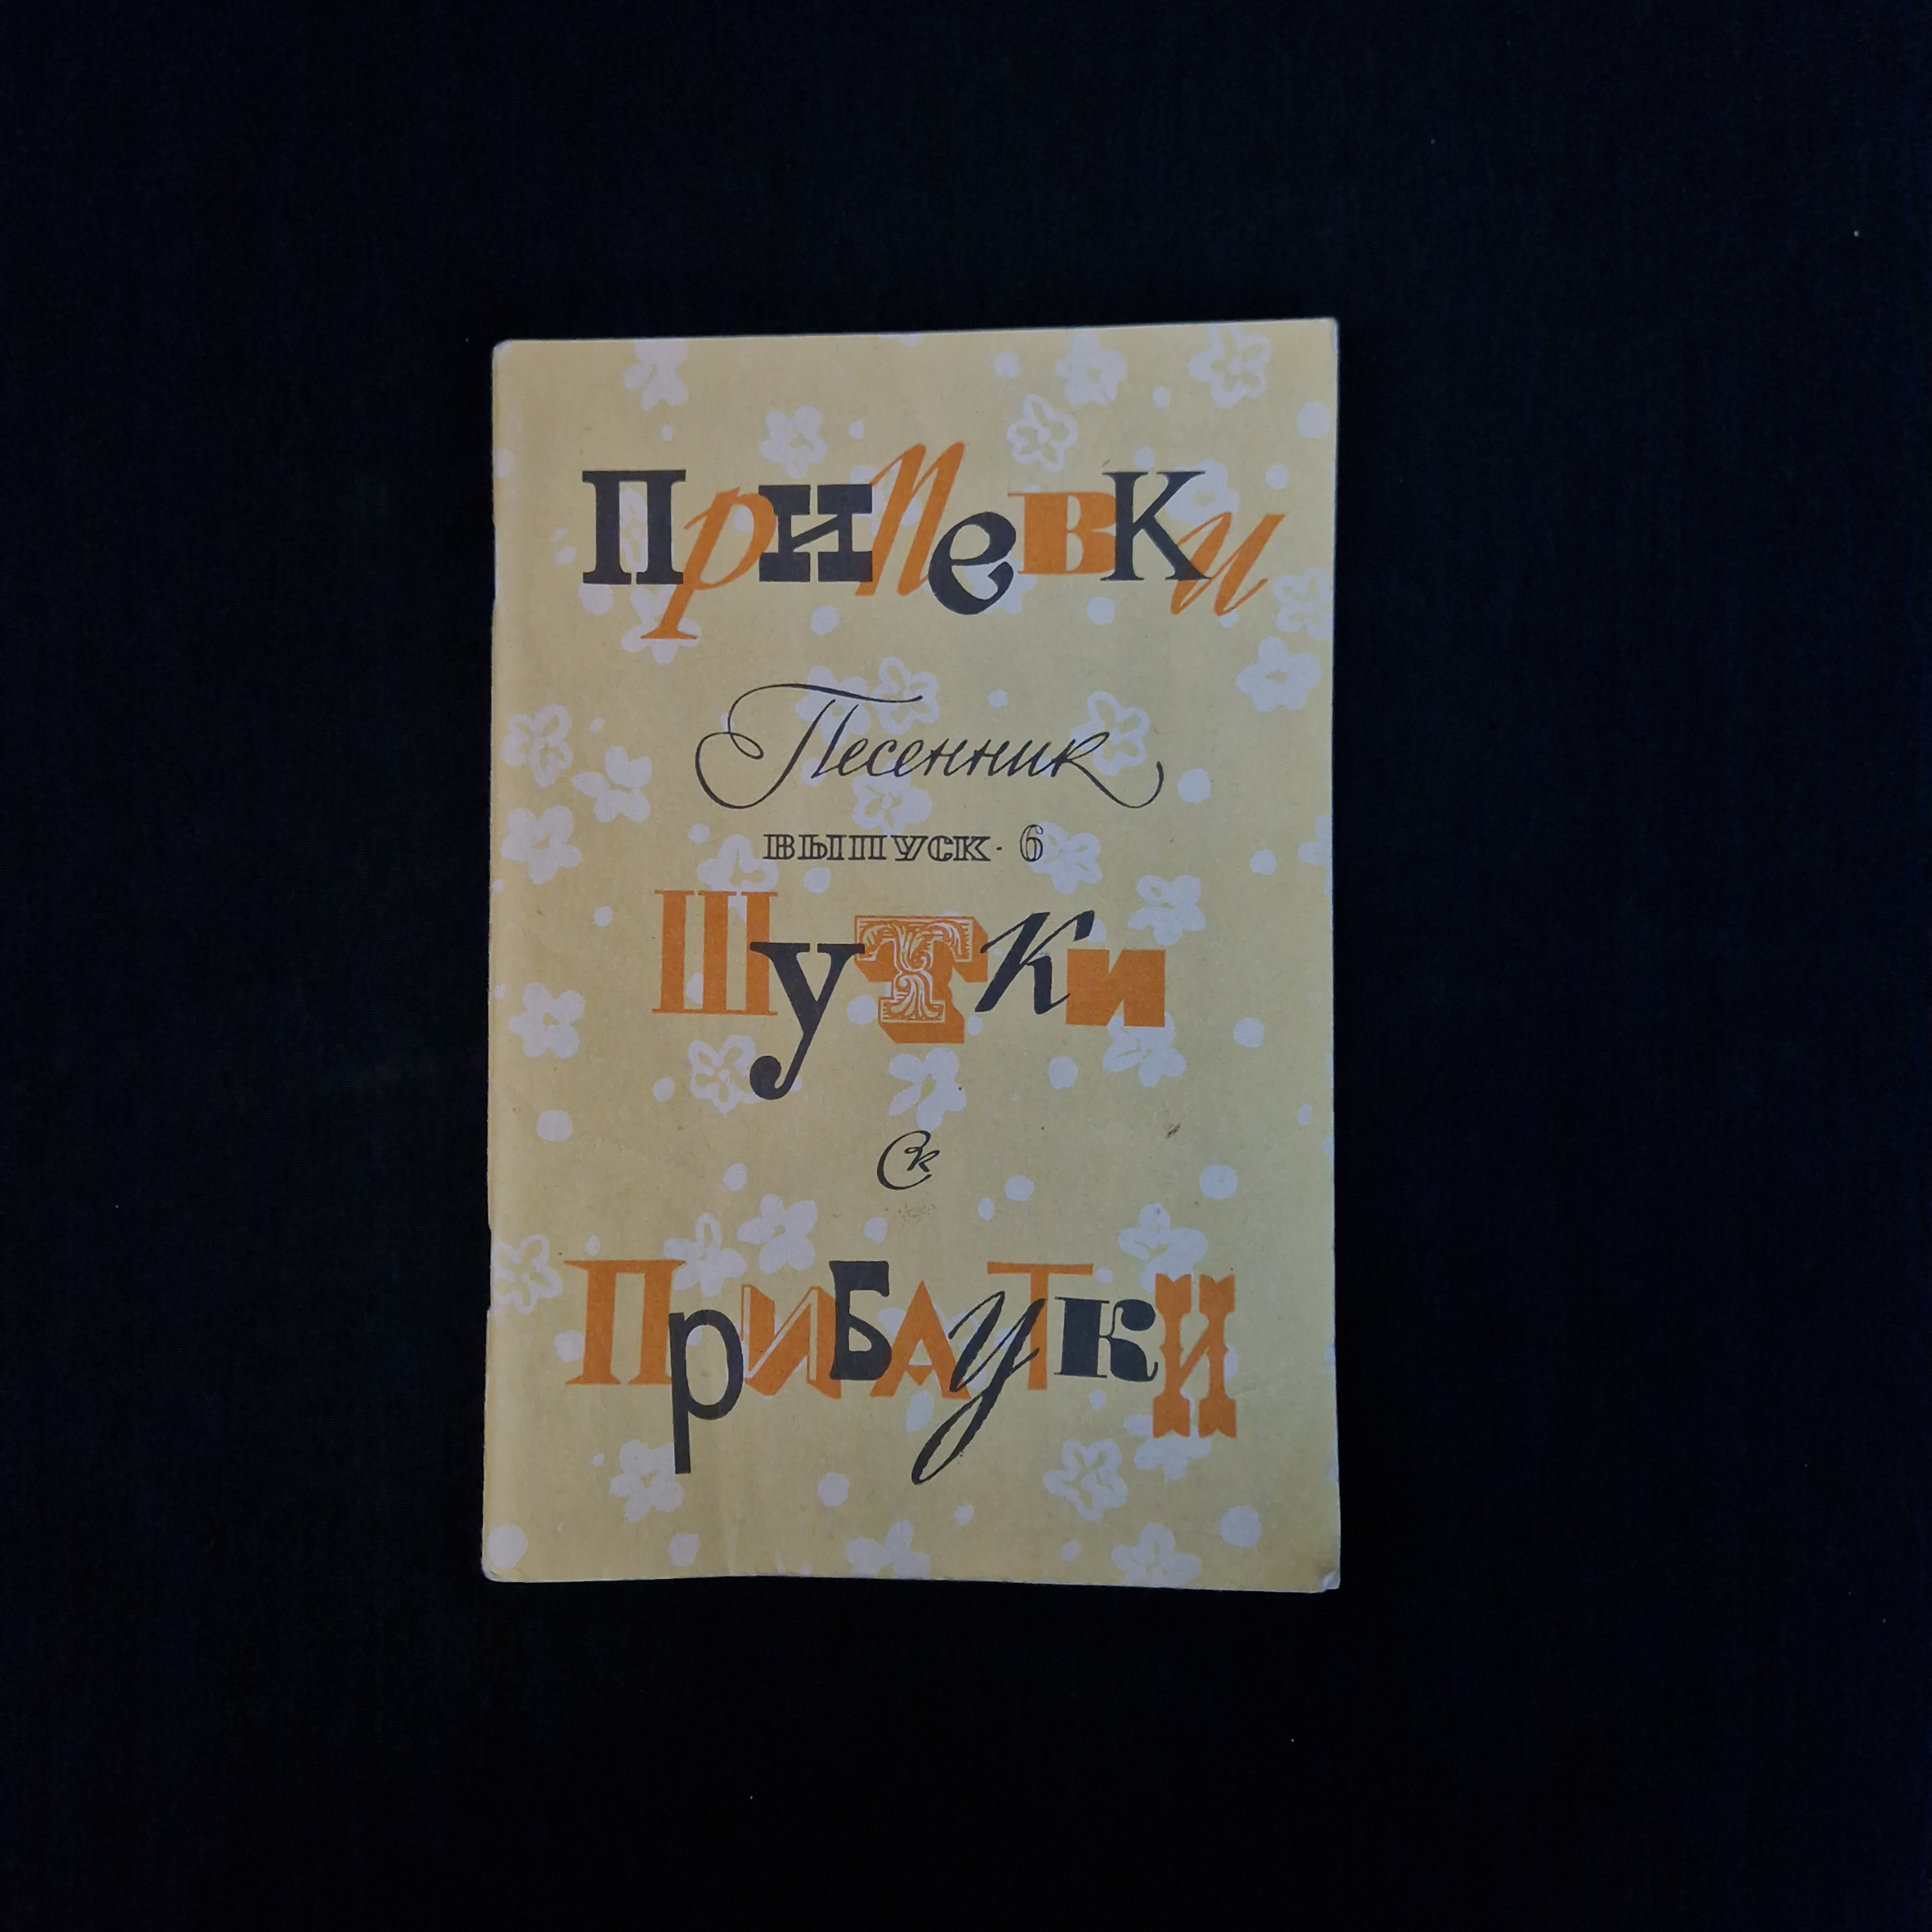 Припевки
Песенник
ВЫПУСК · 6
Шутки
Ск
ПриБАутки